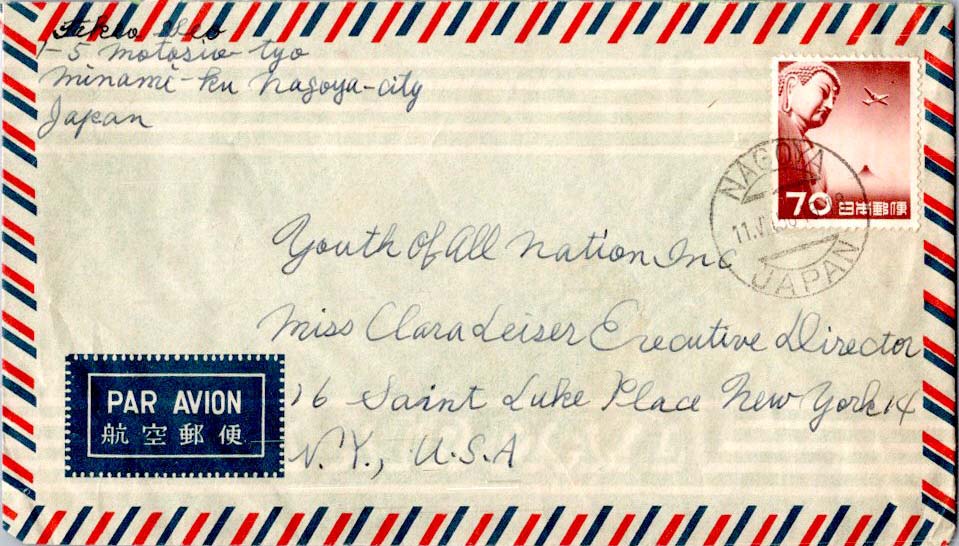 1-5 motosio-tyo
minami-ku nagoya-city
Japan
70 日本郵便
NAGOYA
JAPAN
Youth Of All Nation Inc
Miss Clara Leiser Executive Director
16 Saint Luke Place New York 14
N.Y., U.S.A
PAR AVION
航空郵便